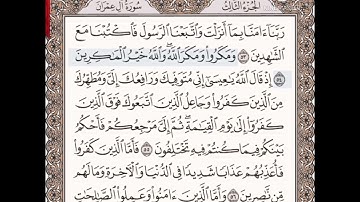 الجزء الثالث سورة آل عمران
رَبَّنَآ ءَامَنَّا بِمَآ أَنزَلْتَ وَٱتَّبَعْنَا ٱلرَّسُولَ فَٱكْتُبْنَا مَعَ
ٱلشَّٰهِدِينَ ٥٣ وَمَكَرُوا۟ وَمَكَرَ ٱللَّهُ وَٱللَّهُ خَيْرُ ٱلْمَٰكِرِينَ
٥٤ إِذْ قَالَ ٱللَّهُ يَٰعِيسَىٰٓ إِنِّى مُتَوَفِّيكَ وَرَافِعُكَ إِلَىَّ وَمُطَهِّرُكَ
مِنَ ٱلَّذِينَ كَفَرُوا۟ وَجَاعِلُ ٱلَّذِينَ ٱتَّبَعُوكَ فَوْقَ ٱلَّذِينَ
كَفَرُوٓا۟ إِلَىٰ يَوْمِ ٱلْقِيَٰمَةِ ثُمَّ إِلَىَّ مَرْجِعُكُمْ فَأَحْكُمُ
بَيْنَكُمْ فِيمَا كُنتُمْ فِيهِ تَخْتَلِفُونَ ٥٥ فَأَمَّا ٱلَّذِينَ كَفَرُوا۟
فَأُعَذِّبُهُمْ عَذَابًا شَدِيدًا فِى ٱلدُّنْيَا وَٱلْءَاخِرَةِ وَمَا لَهُم
مِّن نَّٰصِرِينَ ٥٦ وَأَمَّا ٱلَّذِينَ ءَامَنُوا۟ وَعَمِلُوا۟ ٱلصَّٰلِحَٰتِ